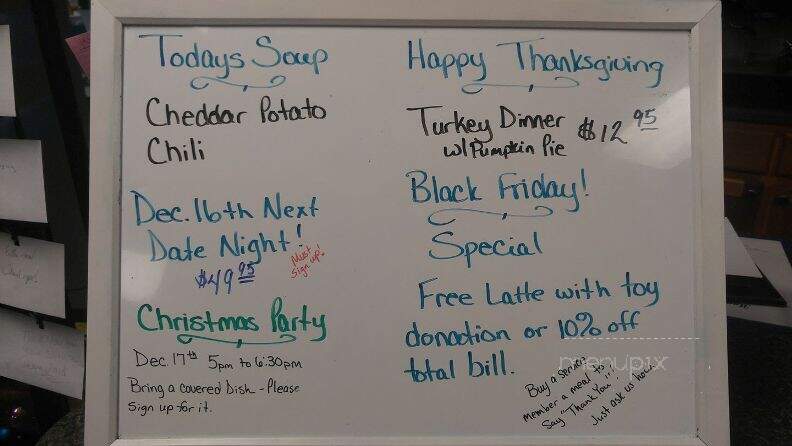 Todays Soup
Cheddar Potato
Chili
Dec. 16th Next
Date Night!
Must
sign up!
$49.95
Christmas Party
Dec. 17th 5pm to 6:30pm
Bring a covered Dish - Please
Sign up for it.
Happy Thanksgiving
Turkey Dinner $12.95
w/ Pumpkin Pie
Black Friday!
Special
Free Latte with toy
donation or 10% off
total bill.
menupix
Buy a service
member a meal to
Say "Thank You"!
Just ask us how.